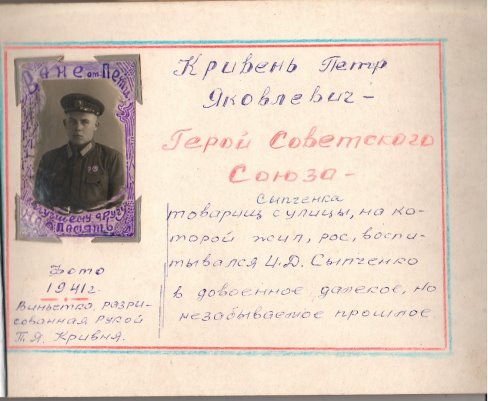 Ване от Пети
лучшему другу
Память
Кривень Петр
Яковлевич-
Герой Советского
Союза-
Сыпченка
товарищ с улицы, на ко-
торой жил, рос, воспи-
тывался И.Д. Сыпченко
в довоенное далекое, но
незабываемое прошлое
Фото
1941г.
Виньетка разри-
сованная рукой
П.Я. Кривня.